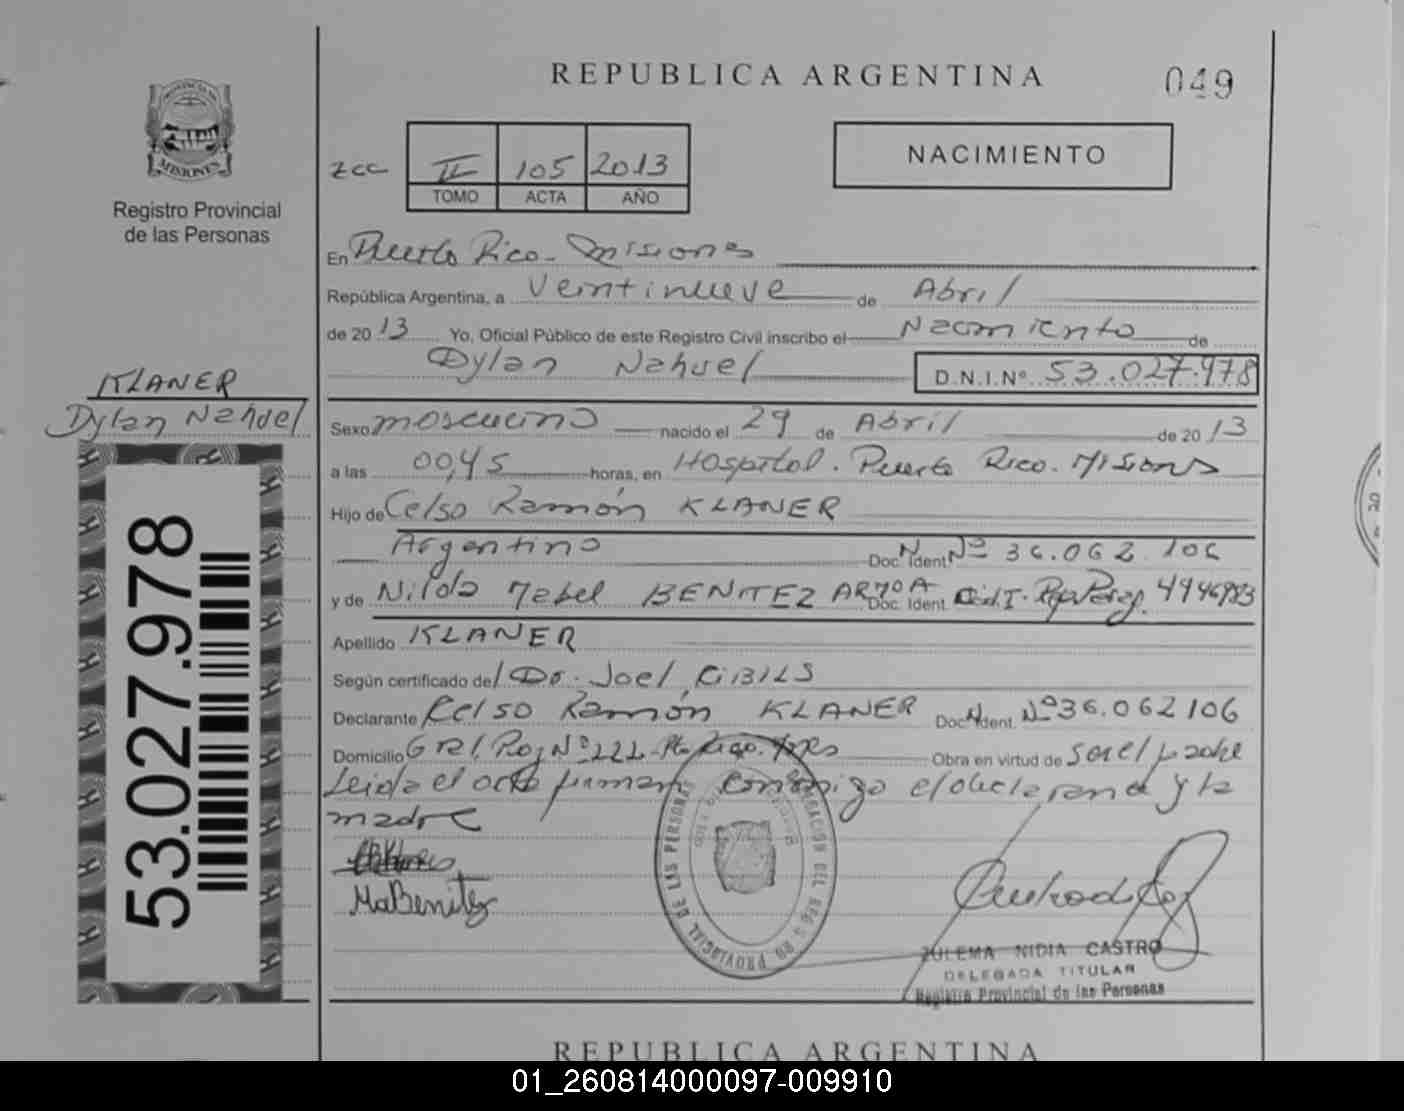 REPUBLICA ARGENTINA
049
PROVINCIA DE
MISIONES
Registro Provincial
de las Personas
II 105 2013
TOMO ACTA AÑO
NACIMIENTO
En Puerto Rico - Misiones
República Argentina, a Veintinueve de Abril
de 2013 Yo, Oficial Público de este Registro Civil inscribo el Nacimiento de
Dylan Nahuel D.N.I.Nº 53.027.978
KLANER
Dylan Nahuel
53.027.978
Sexo masculino nacido el 29 de Abril de 2013
a las 00,45 horas, en Hospital. Puerto Rico. Misiones
Hijo de Celso Ramón KLANER
Argentino Doc. Ident. Nº 36.062.106
y de Nilda Mabel BENITEZ Doc. Ident.
Apellido KLANER
Según certificado de Dr. Joel
Declarante Celso Ramón KLANER Doc. Ident. Nº 36.062106
Domicilio Gral. Roj Nº 222 Obra en virtud de ser el padre
Leida el acta firman conmigo el declarante y la
madre
MaBenitez
PROVINCIAL DE LAS PERSONAS
ZULEMA NIDIA CASTRO
DELEGADA TITULAR
Registro Provincial de las Personas
REPUBLICA ARGENTINA
01_260814000097-009910